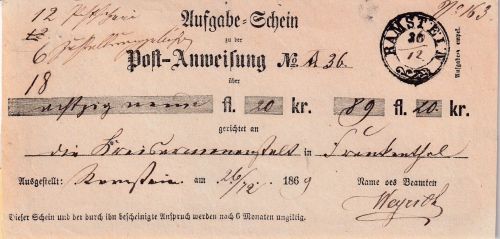 12 Postschein
12
6 Zustellungsgebühr
18
Aufgabe-Schein
zu der
Post-Anweisung № A 36.
über
achtzig neun fl. 20 kr. 89 fl. 20 kr.
gerichtet an
die Kreisarmenanstalt in Frankenthal
Ausgestellt: Ramstein am 26/12. 1869
Name des Beamten
Weyrich
Dieser Schein und der durch ihn bescheinigte Anspruch werden nach 6 Monaten ungiltig.
RAMSTEIN
26
12.
No 163
Aufgaben empf.